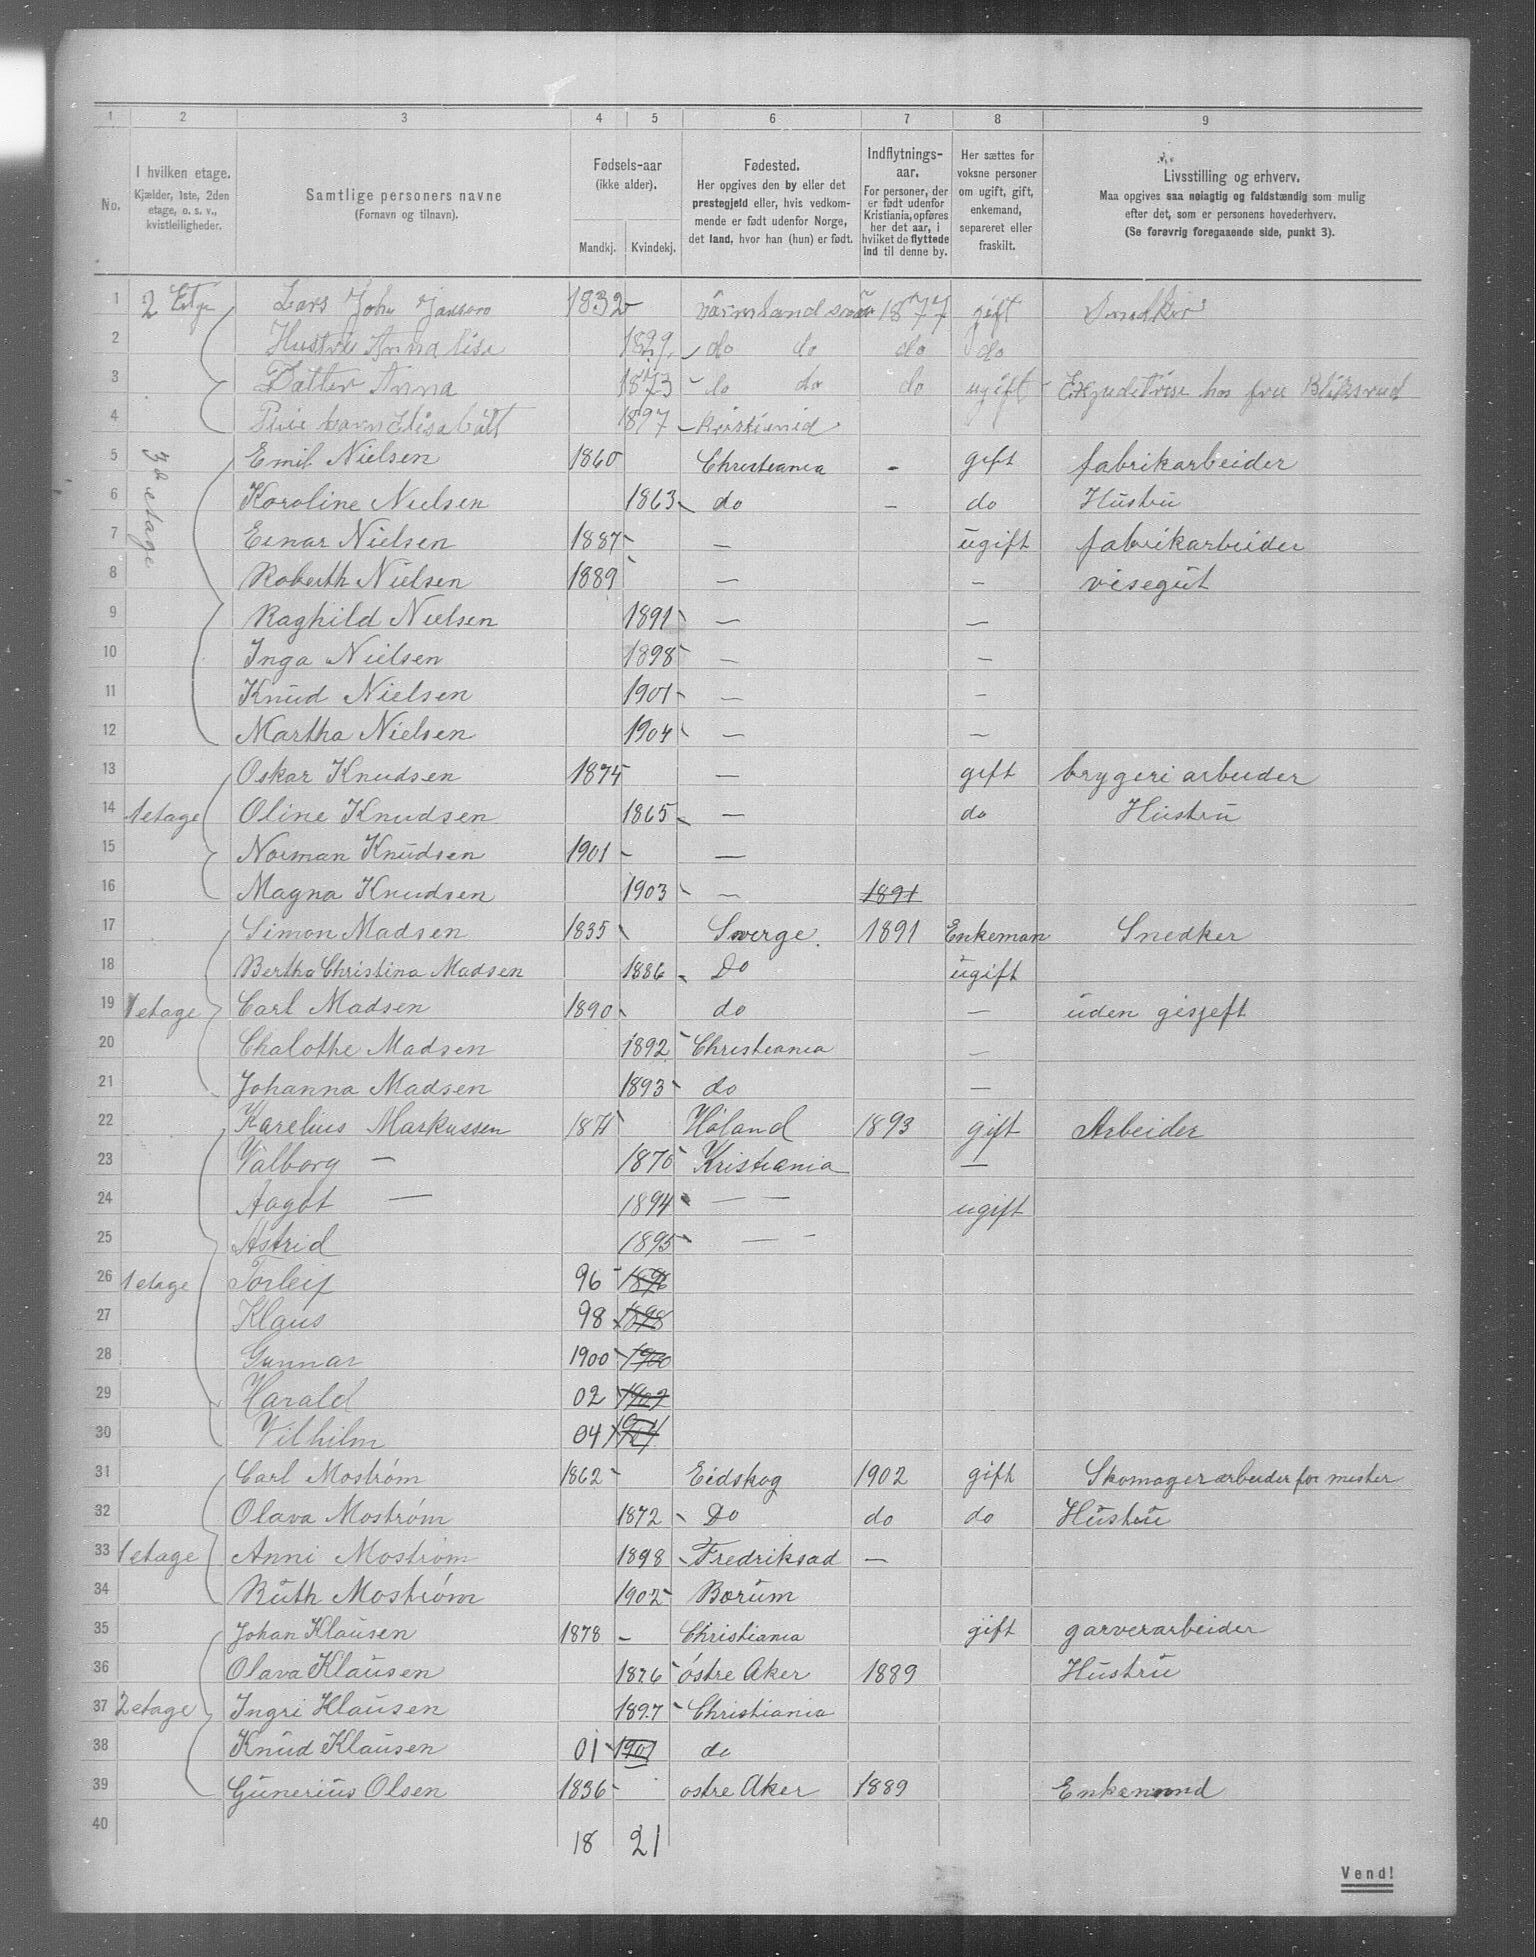 1 2 3 4 5 6 7 8 9
No.
I hvilken etage.
Kjælder, 1ste, 2den
etage, o. s. v.,
kvistleiligheder.
Samtlige personers navne
(Fornavn og tilnavn).
Fødsels-aar
(ikke alder).
Mandkj. Kvindekj.
Fødested.
Her opgives den by eller det
prestegjeld eller, hvis vedkom-
mende er født udenfor Norge,
det land, hvor han (hun) er født.
Indflytnings-
aar.
For personer, der
er født udenfor
Kristiania, opføres
her det aar, i
hvilket de flyttede
ind til denne by.
Her sættes for
voksne personer
om ugift, gift,
enkemand,
separeret eller
fraskilt.
Livsstilling og erhverv.
Maa opgives saa nøiagtig og fuldstændig som mulig
efter det, som er personens hovederhverv.
(Se forøvrig foregaaende side, punkt 3).
1 2 Etge Lars John 1832 - 1877 gift
2 Hustru Anna Lisa 1829 do do do do
3 Datter Anna 1873 do do do ugift hos fru
4 1897
5 3die etage Emil Nielsen 1860 Christiania - gift fabrikarbeider
6 Karoline Nielsen 1863 do - do Hustru
7 Einar Nielsen 1887 — ugift fabrikarbeider
8 Roberth Nielsen 1889 — — visegut
9 Raghild Nielsen 1891 — —
10 Inga Nielsen 1898 — —
11 Knud Nielsen 1901 — —
12 Martha Nielsen 1904 — —
13 Oskar Knudsen 1875 — gift brygeri arbeider
14 1 etage Oline Knudsen 1865 — do Hustru
15 Norman Knudsen 1901 — —
16 Magna Knudsen 1903 — 1891
17 Simon Madsen 1835 Sverge. 1891 Enkeman Snedker
18 Bertha Christina Madsen 1886 Do ugift
19 1 etage Carl Madsen 1890 do — uden gisjeft
20 Chalothe Madsen 1892 Christiania —
21 Johanna Madsen 1893 do —
22 Karelius Markussen 1871 Høland 1893 gift Arbeider
23 Valborg — 1875 Kristiania —
24 Aagot — 1894 — — ugift
25 Astrid 1895 — —
26 1 etage Torleif 96 1896
27 Klaus 98 1898
28 Gunnar 1900 1900
29 Harald 02 1902
30 Vilhilm 04 1904
31 Carl Moström 1862 Eidskog 1902 gift Skomagerarbeider for mester
32 Olava Moström 1872 Do do do Hustru
33 1 etage Anni Moström 1898 Fredriksad —
34 Ruth Moström 1902 Borum
35 Johan Klausen 1878 - Christiania gift garverarbeider
36 Olava Klausen 1876 östre Aker 1889 Hustru
37 2 etage Ingri Klausen 1897 Christiania
38 Knud Klausen 01 1901 do
39 Gunerius Olsen 1836 ostre Aker 1889 Enkemand
40
18 21
Vend!